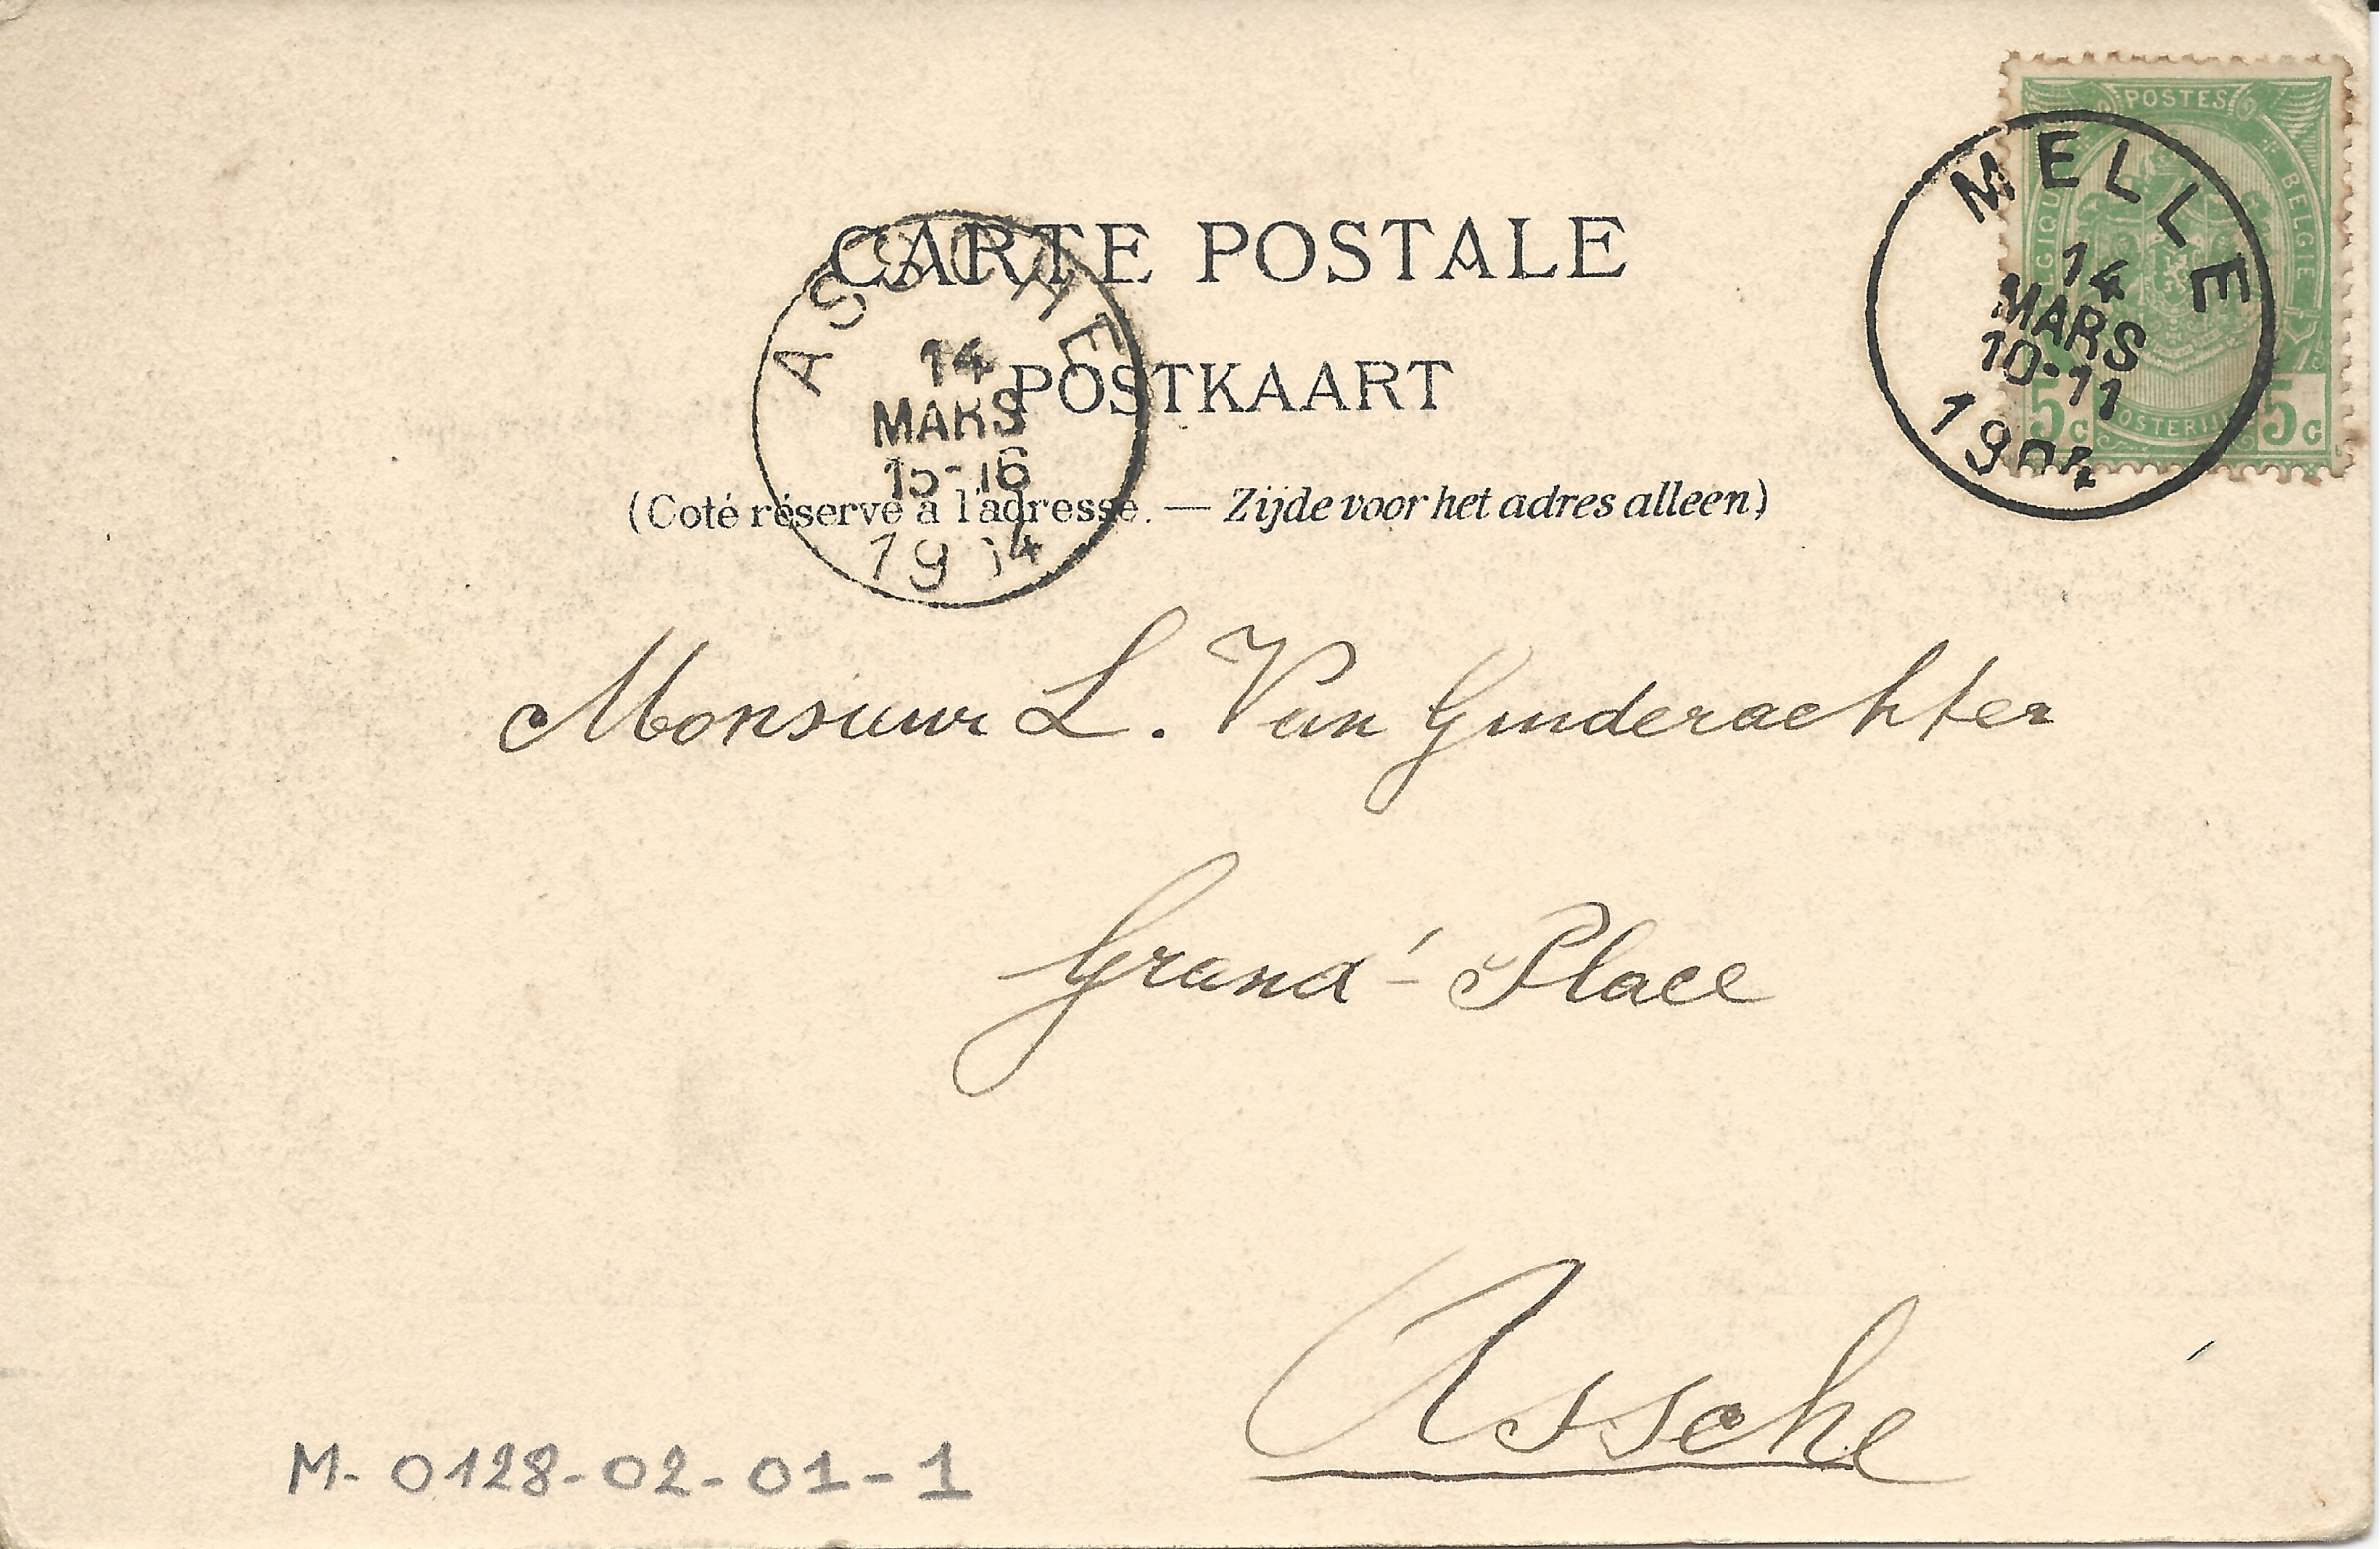 POSTES
BELGIE
5c
5c
MELLE
14
MARS
10-11
1904
CARTE POSTALE
ASSCHE
14
MARS
15-16
19 4
POSTKAART
(Coté réservé à l'adresse. — Zijde voor het adres alleen)
Monsieur L. Van Ginderachter
Grand'-Place
Assche
M-0128-02-01-1